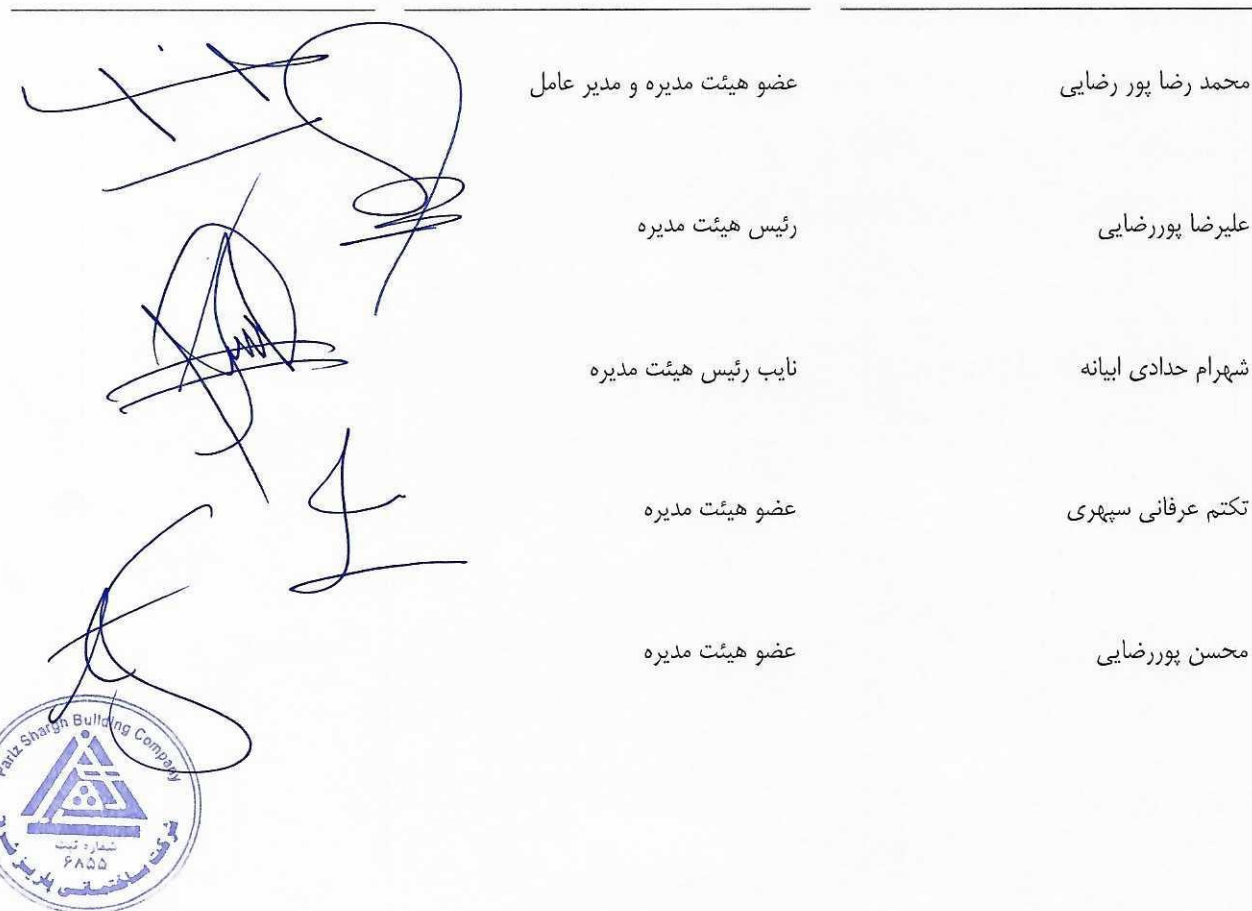 محمد رضا پور رضایی عضو هیئت مدیره و مدیر عامل
علیرضا پوررضایی رئیس هیئت مدیره
شهرام حدادی ابیانه نایب رئیس هیئت مدیره
تکتم عرفانی سپهری عضو هیئت مدیره
محسن پوررضایی عضو هیئت مدیره
Pariz Shargh Building Company
شماره ثبت
۶۸۵۵
شرکت ساختمانی پاریز